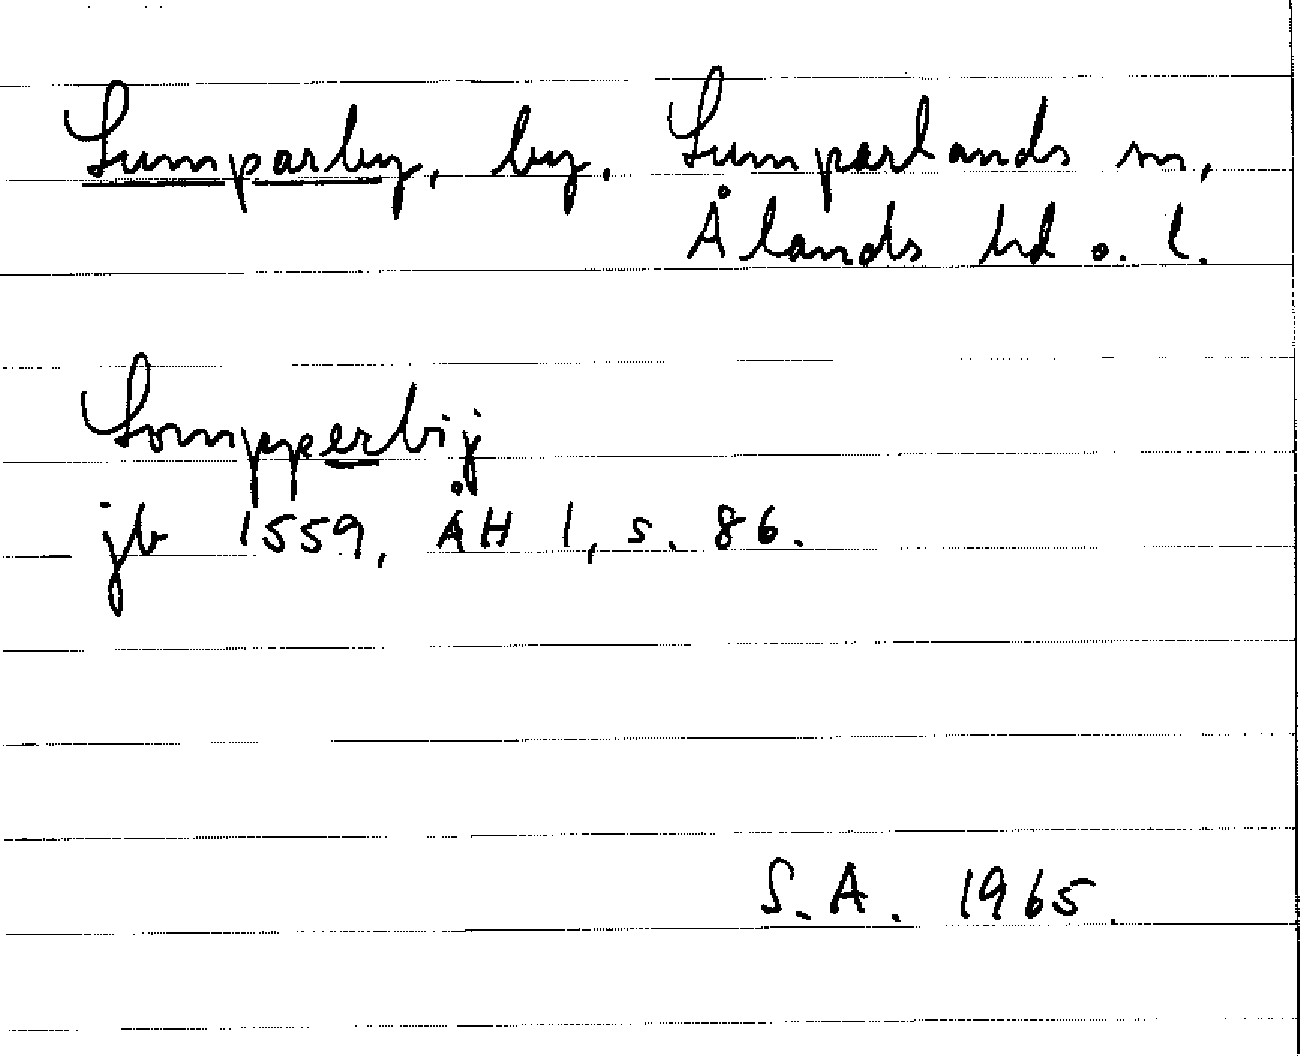 Lumparby, by. Lumparlands sn,
Ålands hd o. l.
Lompperbij
jb 1559, ÅH 1, s. 86.
S.A. 1965.